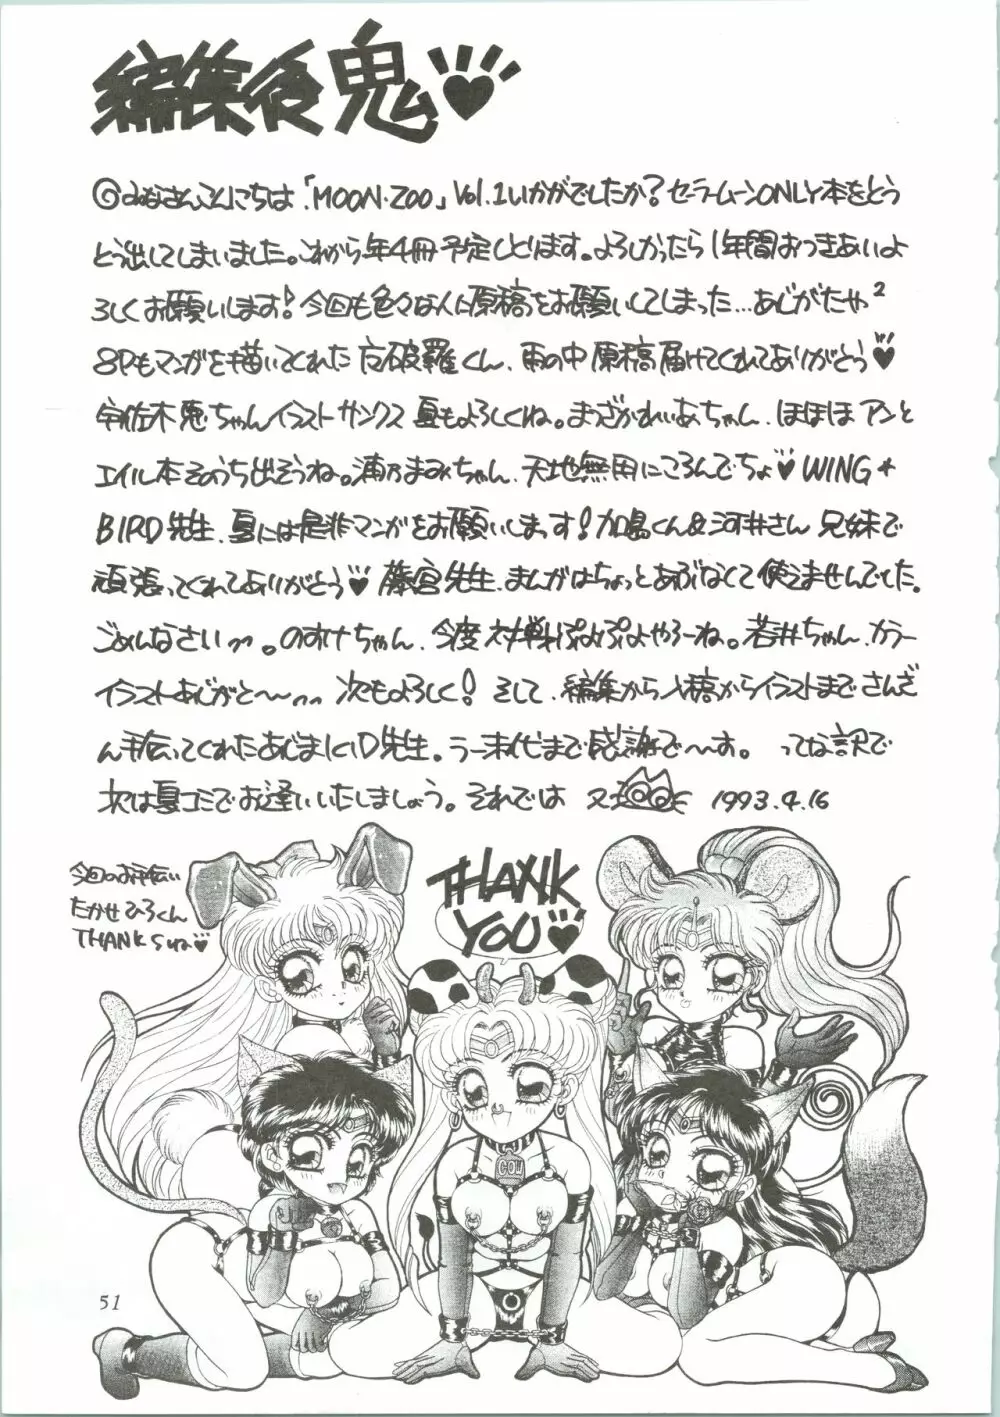 編集后鬼♥
◎みなさんこんにちは「MOON・ZOO」Vol.1いかがでしたか？セーラームーンONLY本をとう
とう出してしまいました。これから年4冊予定しとります。よろしかったら1年間おつきあいよ
ろしくお願いします！今回も色々な人に原稿をお願いしてしまった…ありがたや²
8Pもマンガを描いてくれた 破羅くん、雨の中原稿届けてくれてありがとう♥
宇佐木恵ちゃんイラストサンクス 夏もよろしくね。まっざかれいあちゃん、ほほほアンと
エイル本そのうち出そうね。浦乃まみちゃん、天地無用にころんでちょ♥WING★
BIRD先生、夏には是非マンガをお願いしまっす！加島くん&河井さん 兄妹で
頑張ってくれてありがとう♥藤宮先生、まんがはちょっとあぶなくて使えませんでした。
ごめんなさいっっ。のすけちゃん、今度対戦ぷよぷよやろーね。若井ちゃん、カラー
イラストありがと〜〜っっ 次もよろしく！そして、編集から入稿からイラストまでさんざ
ん手伝ってくれたあじまKID先生。うー末代まで感謝で〜す。 ってな訳で
次は夏コミでお逢いいたしましょう。それでは 1993.4.16
今回のお手伝い
たかせひろくん
THANKSっっ♥
THANK
YOU♥
COW
51